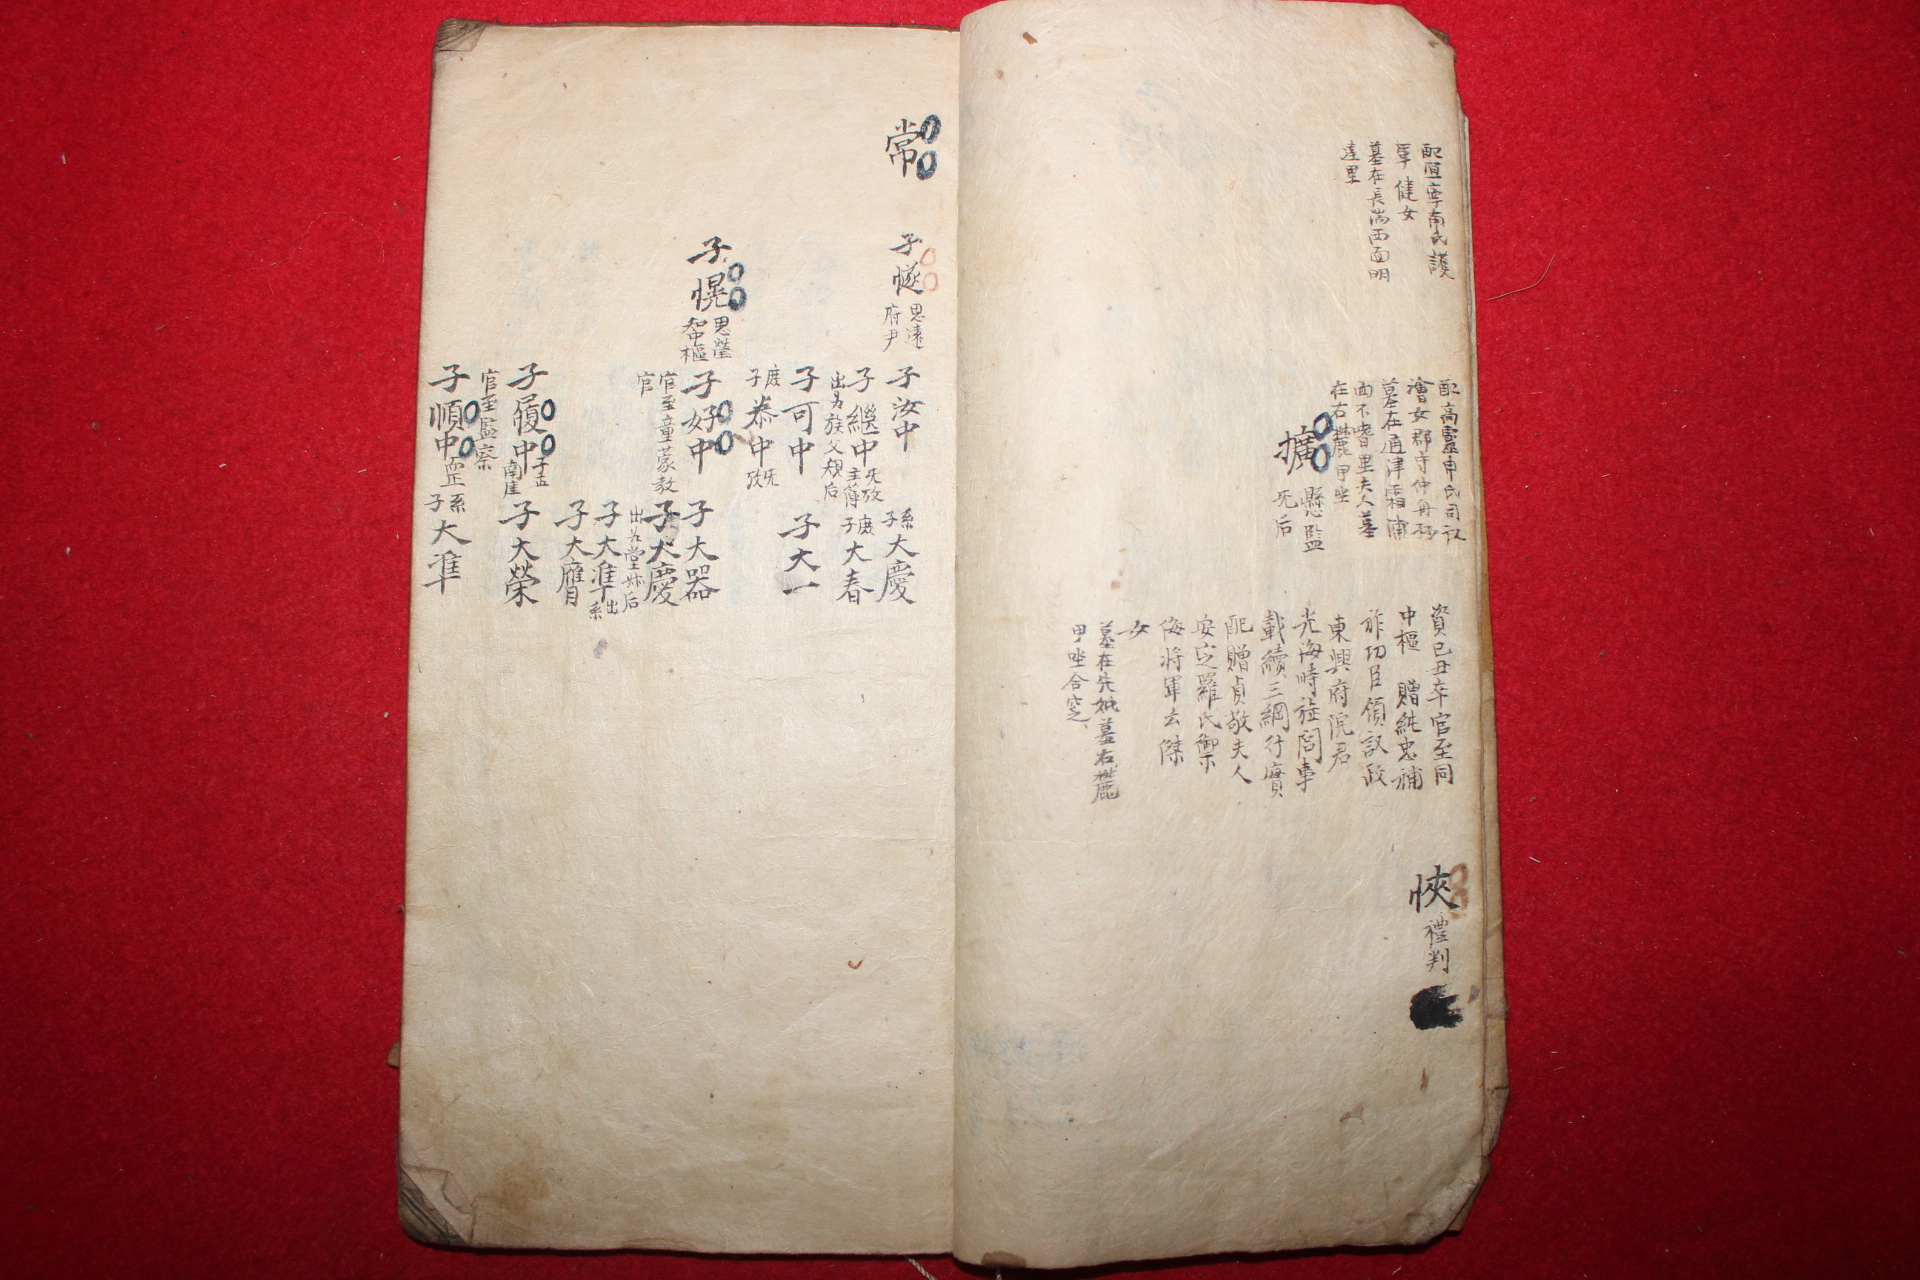 配宜寧南氏護
軍健女
墓在長湍西面明
達里
配高靈申氏司以
澮女郡守仲舟孫
墓在通津霜浦
面不嘗里夫人墓
在右麓甲坐
擴
縣監
无后
資己丑卒官至同
中樞 贈純忠補
祚功臣領議政
東興府院君
光海時旌閭事
載續三綱行實
配贈貞敬夫人
安定羅氏禦
侮將軍云傑
女
墓在先妣墓右麓
甲坐合窆
悏
禮判
常
子㥞
思遠
府尹
子汝中
系子大慶
子繼中
无改
主簿
出為族父規后
庶子大春
子可中
子大一
庶子恭中
无改
子愰
思瑩
知中樞
子好中
官至童蒙敎
官
子大器
子大慶
出為堂妹后
子大準
出系
子大膺
子履中
子正
南崖
官至監察
子大榮
子順中
正
系子大準